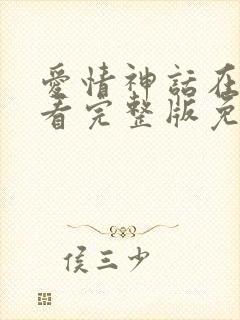 愛情神話在
看完整版免
侯三少